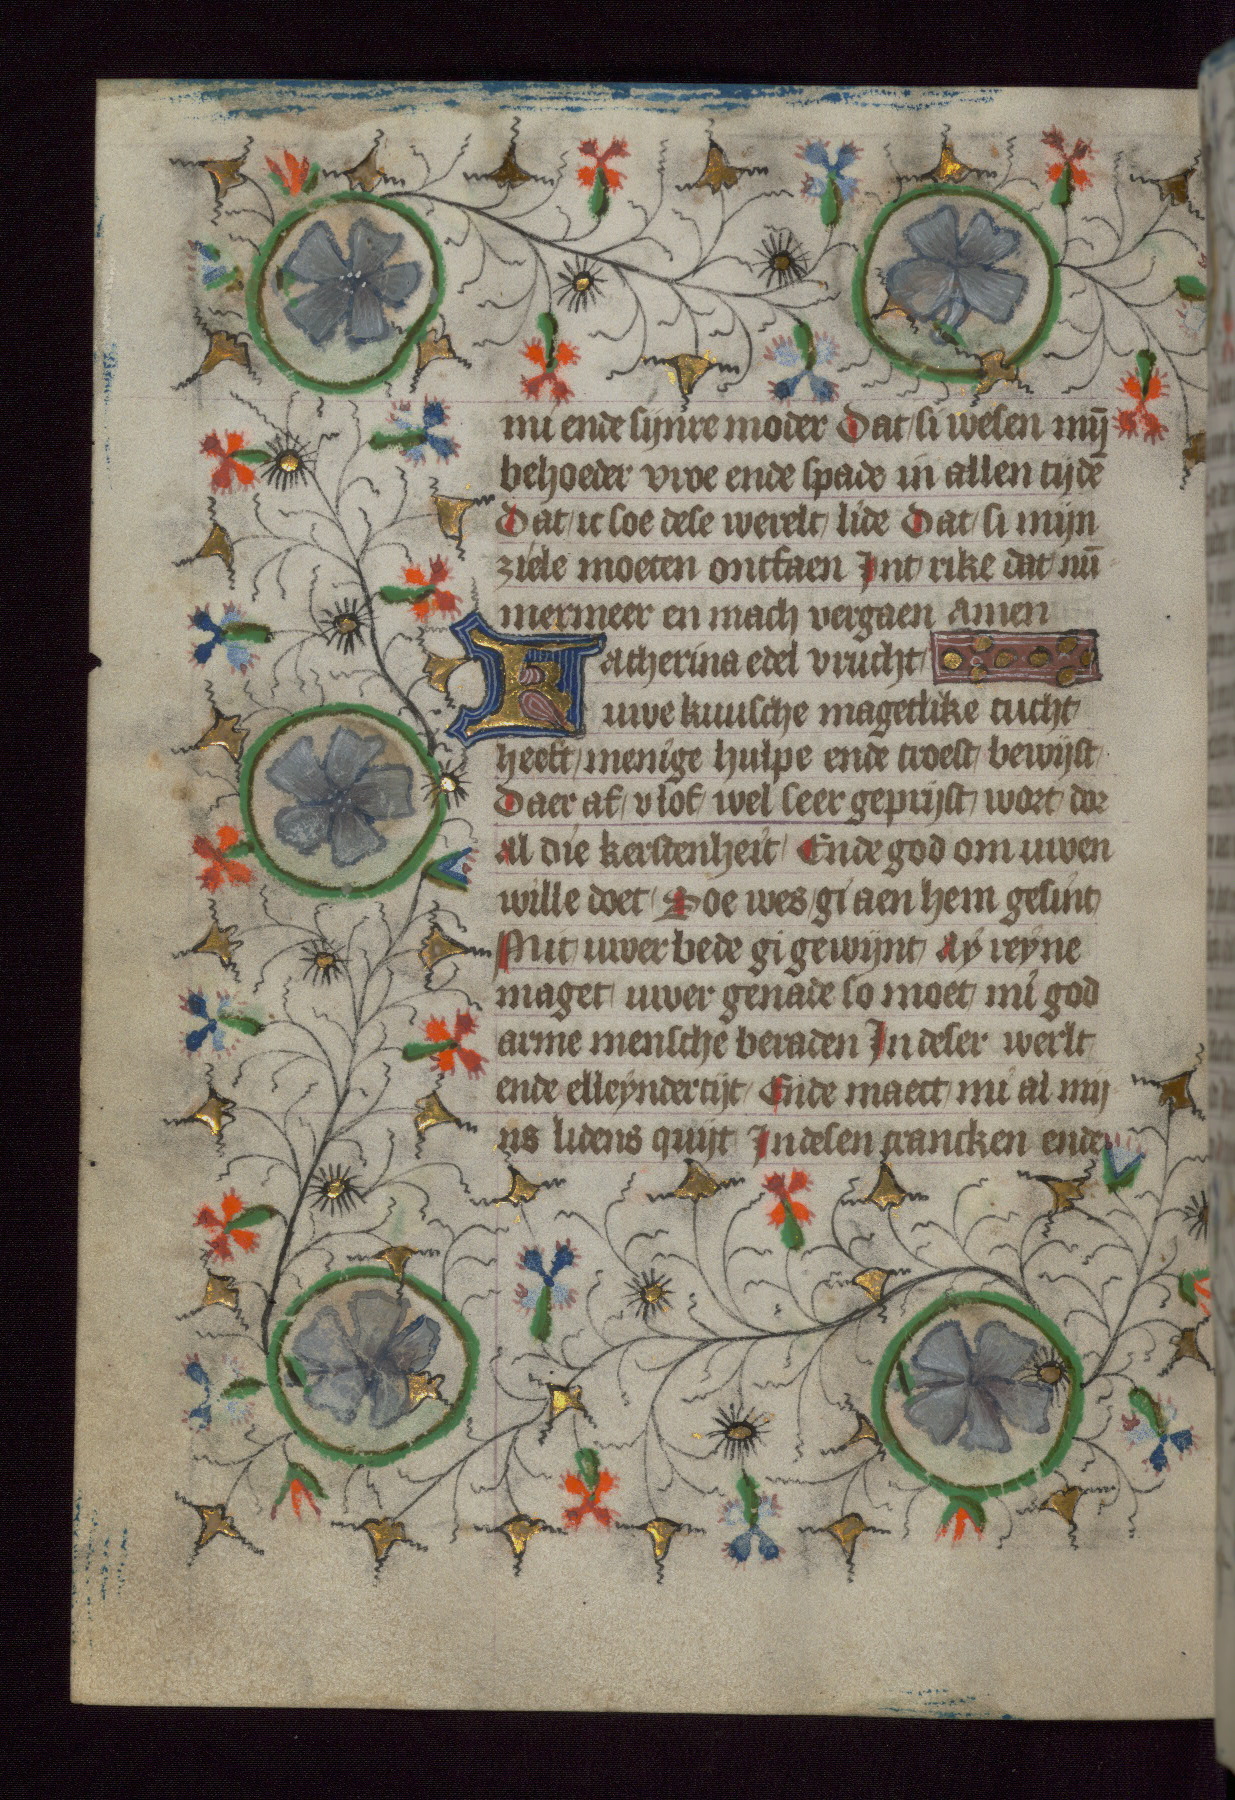 mi ende sijnre moder Dat si wesen mij̄
behoeder vroe ende spade in allen tijdē
Dat ic soe dese werelt lide Dat si mijn
ziele moeten ontfaen Int rike dat nū
mermeer en mach vergaen Amen
Katherina edel vrucht
uwe kuusche magetlike tucht
heeft menige hulpe ende troest bewijst
Daer af v lof wel seer geprijst wort dor
Al die kerstenheit Ende god om uwen
wille doet Soe wes gi aen hem gesint
Mit uwer bede gi gewijnt Ay reyne
maget uwer genade so moet mi god
arme mensche beraden In deser werlt
ende elleyndertijt Ende maect mi al mij
ns lidens quijt In desen crancken ende